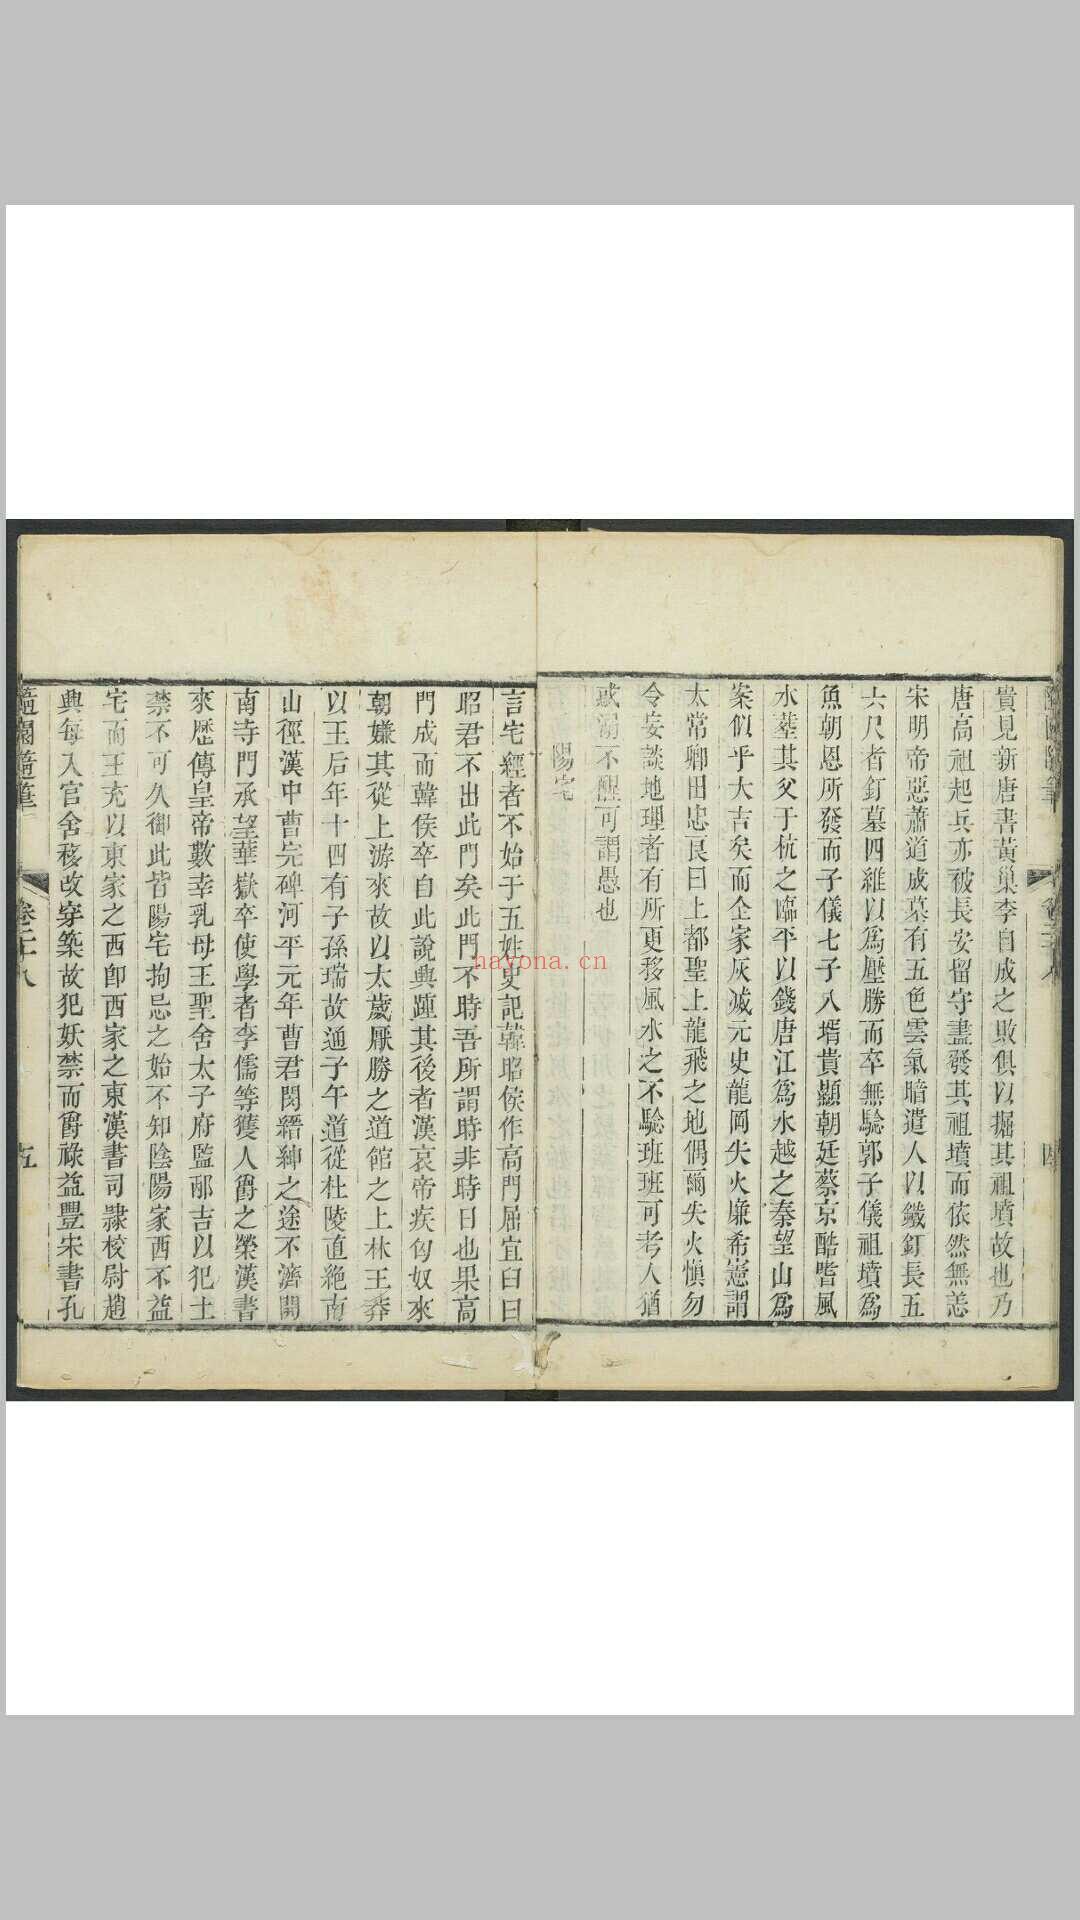 貴見新唐書黃巢李自成之敗俱以掘其祖墳故也乃
唐高祖起兵亦被長安留守盡發其祖墳而依然無恙
宋明帝惡蕭道成墓有五色雲氣暗遣人以鐵釘長五
六尺者釘墓四維以爲壓勝而卒無驗郭子儀祖墳爲
魚朝恩所發而子儀七子八壻貴顯朝廷蔡京酷嗜風
水葬其父于杭之臨平以錢唐江爲水越之秦望山爲
案似乎大吉矣而全家灰滅元史龍岡失火廉希憲謂
太常卿田忠良曰上都聖上龍飛之地偶爾失火愼勿
令妄談地理者有所更移風水之不驗班班可考人猶
或溺不醒可謂愚也
陽宅
言宅經者不始于五姓史記韓昭侯作高門屈宜臼曰
昭君不出此門矣此門不時吾所謂時非時日也果高
門成而韓侯卒自此說興踵其後者漢哀帝疾匈奴來
朝嫌其從上游來故以太歲厭勝之道館之上林王莽
以王后年十四有子孫瑞故通子午道從杜陵直絶南
山徑漢中曹完碑河平元年曹君閔縉紳之途不濟開
南寺門承望華嶽卒使學者李儒等獲人爵之榮漢書
來歷傳皇帝數幸乳母王聖舍太子府監邴吉以犯土
禁不可久御此皆陽宅拘忌之始不知陰陽家西不益
宅而王充以東家之西卽西家之東漢書司隷校尉趙
興每入官舍移故穿築故犯妖禁而爵祿益豐宋書孔
隨園隨筆
卷二十八
五
hayona.cn